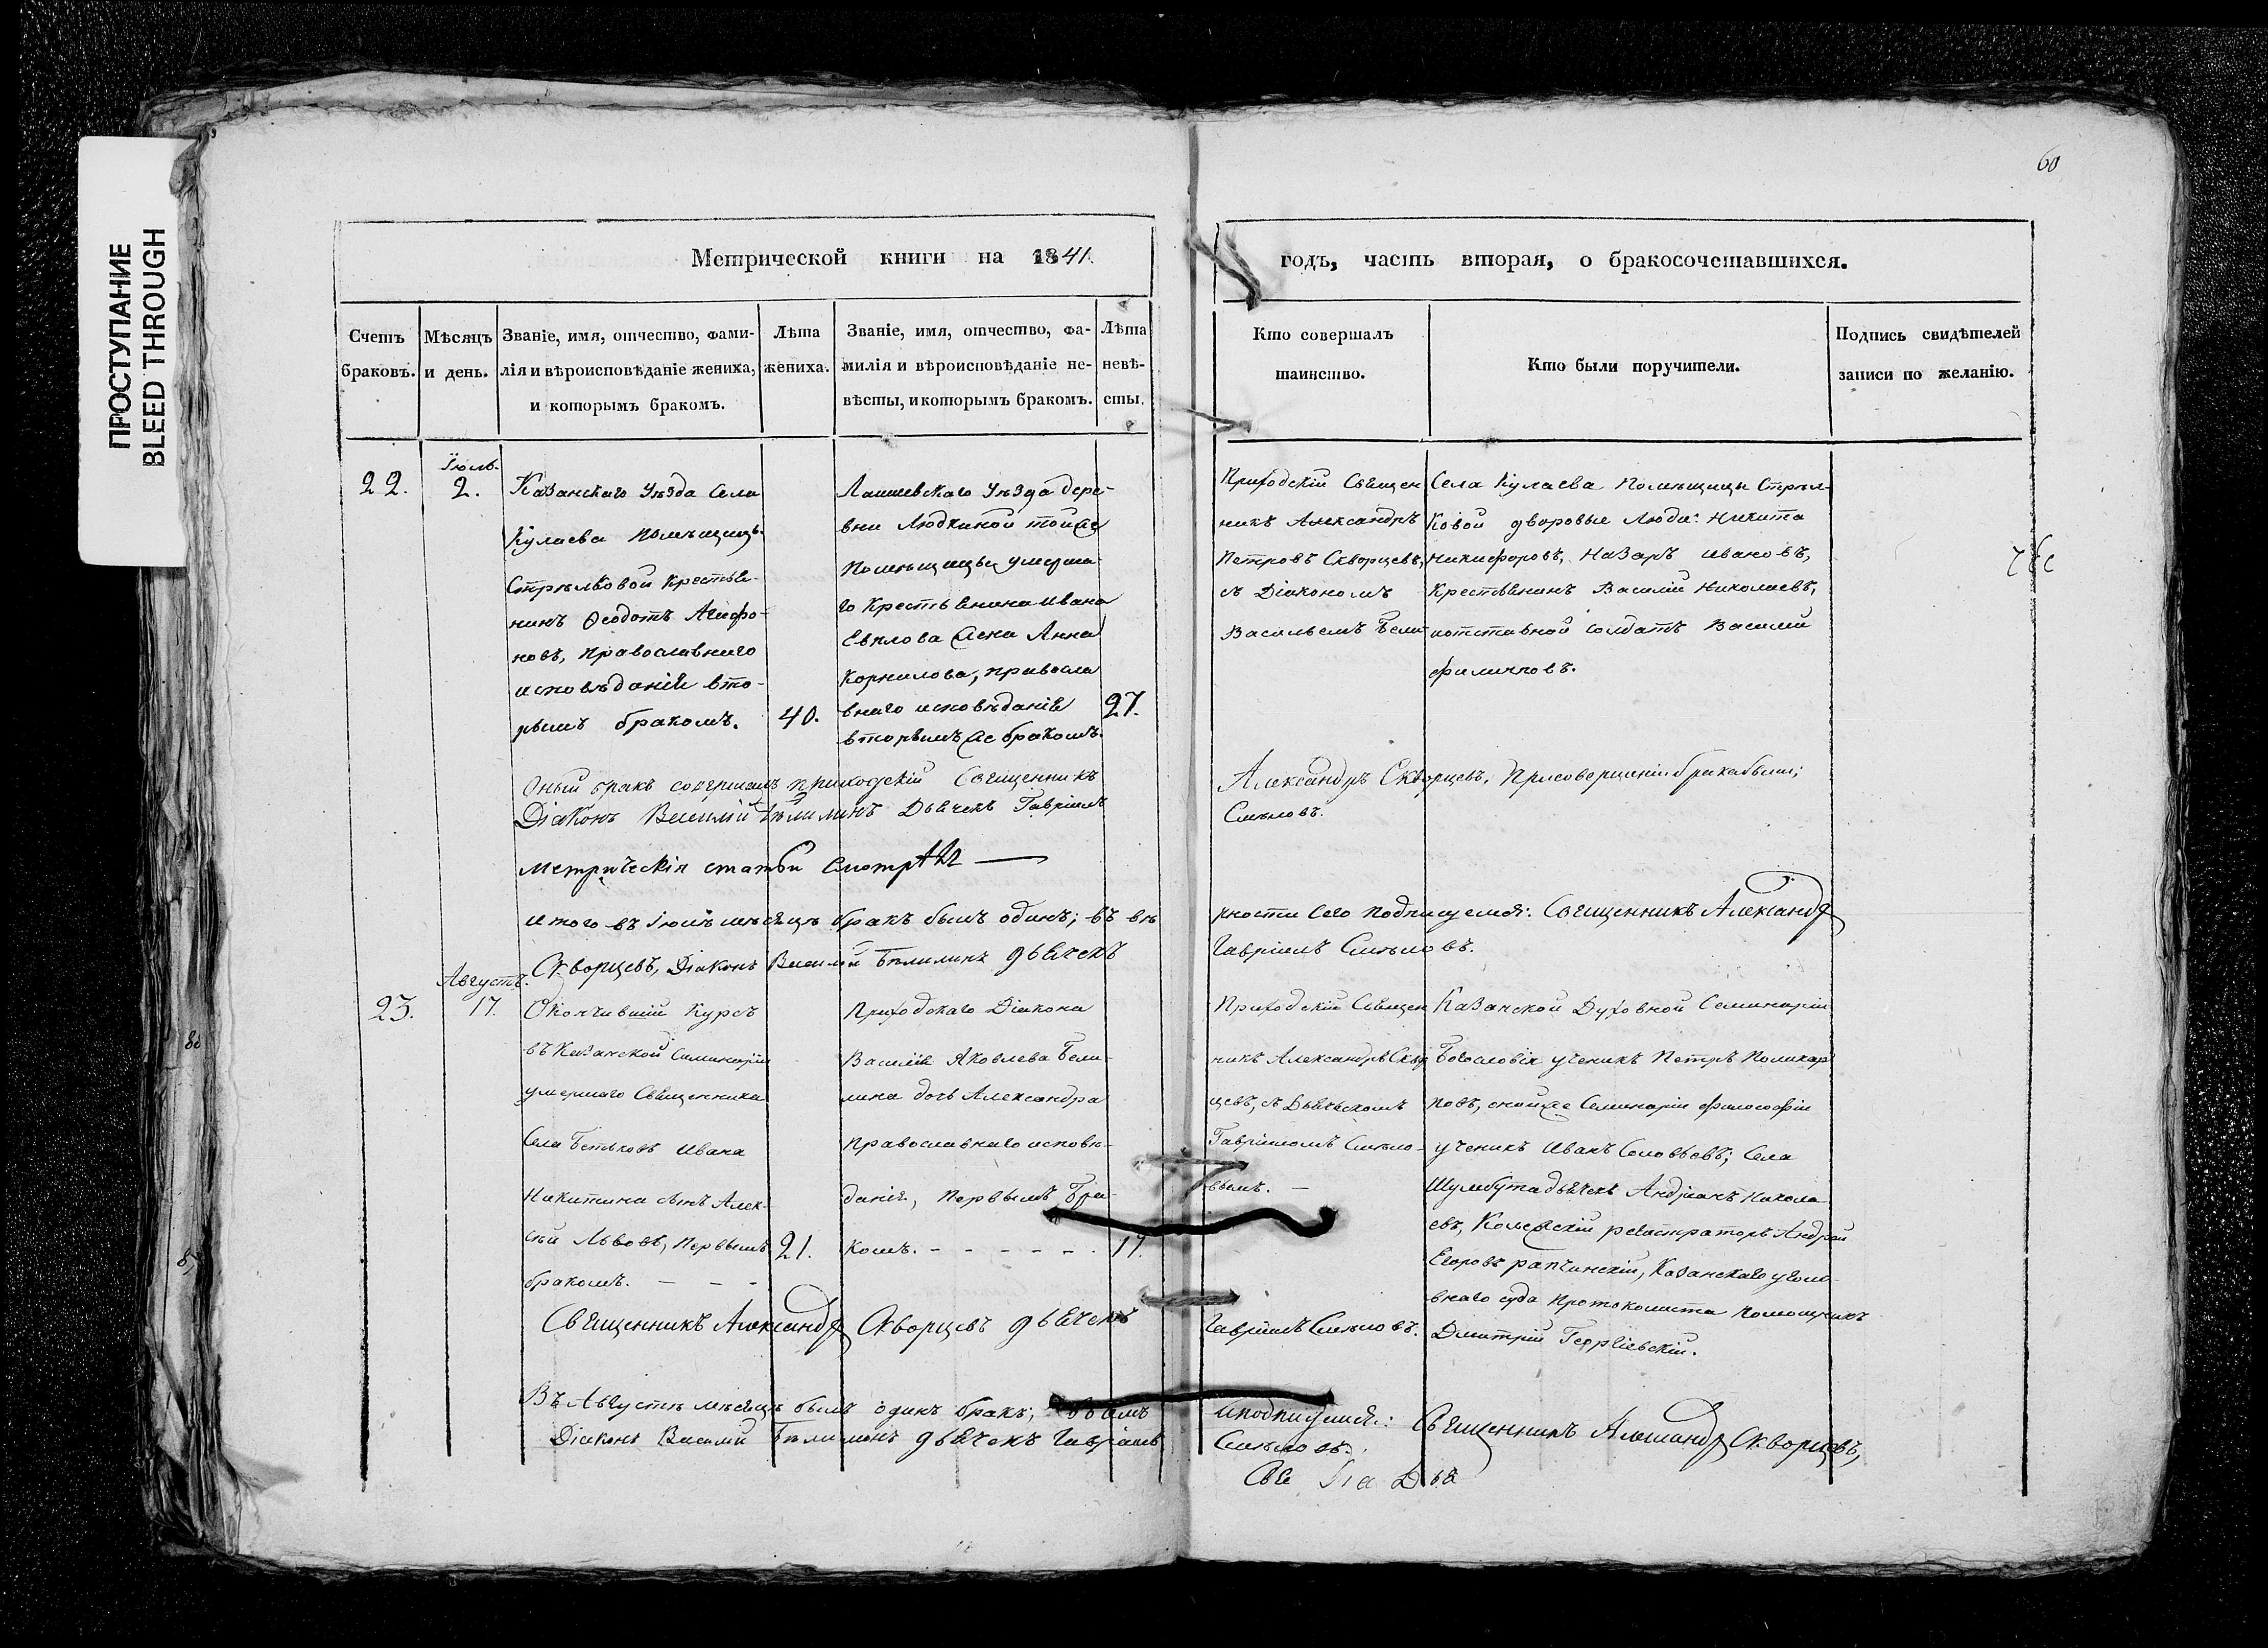 ПРОСТУПАНИЕ
BLEED THROUGH
60
Метрической книги на 1841.
годъ, часть вторая, о бракосочетавшихся.
Счетъ браковъ.
Мѣсяцъ и день.
Званіе, имя, отчество, фами-
лія и вѣроисповѣданіе жениха,
и которымъ бракомъ.
Лѣта
жениха.
Званіе, имя, отчество, фа-
милія и вѣроисповѣданіе не-
вѣсты, и которымъ бракомъ.
Лѣта
невѣ-
сты.
Кто совершалъ
таинство.
Кто были поручители.
Подпись свидѣтелей
записи по желанію.
22.
Іюль.
2.
Казанскаго Уѣзда Села
Кулаева Помѣщицы
Стрѣлковой Крестья-
нинъ Ѳеодотъ Агафо-
новъ, православнаго
исповѣданія вто-
рымъ бракомъ.
40.
Лаишевскаго Уѣзда дере-
вни Людкиной тойже
Помѣщицы умерша-
го Крестьянина Ивана
Евплова жена Анна
Корнилова, правосла
внаго исповѣданія
вторымъ же бракомъ.
27.
Приходскій Священ
никъ Александръ
Петровъ Скворцевъ,
съ Діакономъ
Васильемъ Бели-
Села Кулаева Помѣщицы Стрѣл-
ковой дворовые Люди: Никита
Никифоровъ, Назаръ Ивановъ,
Крестьянинъ Василій Николаевъ,
отставной солдатъ Василій
Филиповъ.
Оный бракъ совершалъ приходскій Священникъ
Александръ Скворцевъ, при совершеніи брака были;
Діаконъ Василій Бѣлилинъ Дьячекъ Гавріилъ
Смѣловъ.
Метрическія статьи смотрѣлъ
Итого въ Іюлѣ мѣсяцѣ бракъ былъ одинъ; въ вѣ
рности сего подписуемся: Священникъ Александръ
Скворцевъ, Діаконъ Василій Бѣлилинъ дьячекъ
Гавріилъ Смѣловъ.
23.
Августъ.
17.
Окончившій Курсъ
въ Казанской Семинаріи
умершаго Священника
Села Бетьковъ Ивана
Никитина сынъ Алек-
сѣй Львовъ, первымъ
бракомъ. - - -
21.
Приходскаго Діакона
Василія Яковлева Бели-
лина дочь Александра
Православнаго исповѣ-
данія, первымъ бра-
комъ. - - - - - -
17.
Приходскій Священ
никъ Александръ Сквор
цевъ, съ Дьячькомъ
Гавріиломъ Смѣло-
вымъ. -
Казанской Духовной Семинаріи
Богословія ученикъ Петръ Поликар
повъ, оной же Семинаріи философіи
ученикъ Иванъ Соловьевъ; Села
Шумбута дьячекъ Андріанъ Никола
евъ, Колежскій регистраторъ Андрей
Егоровъ Рапчинскій, Казанскаго уголо
внаго суда протоколиста помощникъ
Дмитрій Георгіевскій.
Священникъ Александръ Скворцевъ дьячекъ
Гавріилъ Смѣловъ.
Въ Августѣ мѣсяцѣ былъ одинъ бракъ; въ чемъ
и подписуемся: Священникъ Александръ Скворцевъ,
Діаконъ Василій Бѣлилинъ дьячекъ Гавріилъ
Смѣловъ.